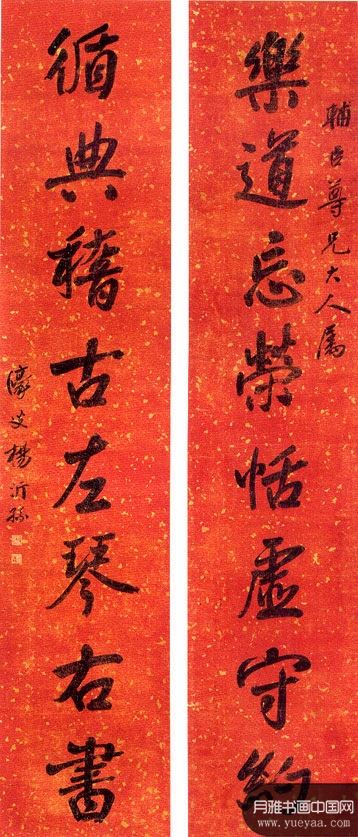 輔臣尊兄大人屬
樂道忘榮恬虛守約
循典稽古左琴右書
濠叟楊沂孫
月雅书画中国网
www.yueyaa.com